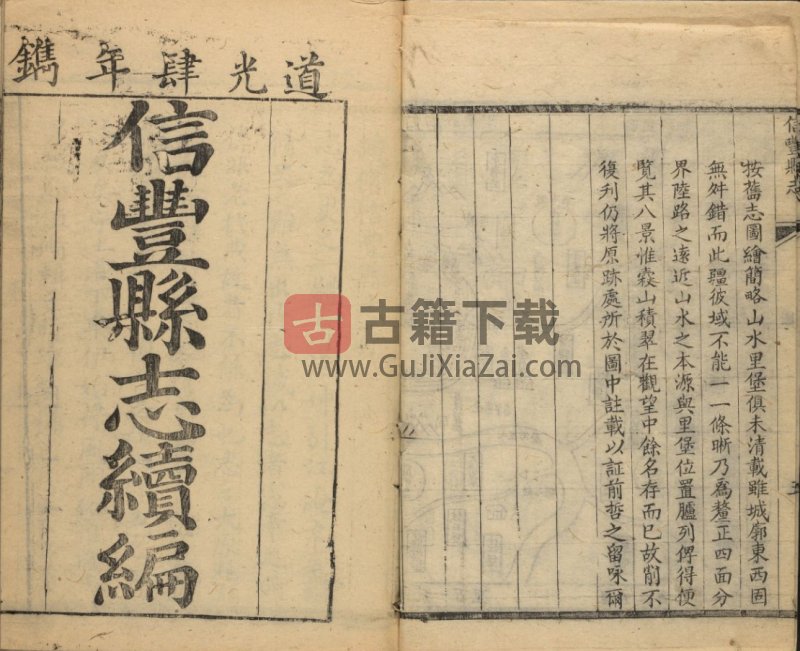 道光肆年鐫
信豐縣志續編
信豐縣志
按舊志圖繪簡略山水里堡俱未清載雖城廓東西固
無舛錯而此疆彼域不能一一條晰乃爲釐正四面分
界陸路之遠近山水之本源與里堡位置臚列俾得便
覽其八景惟霡山積翠在觀望中餘名存而已故削不
復列仍將原跡處所於圖中註載以証前哲之留咏爾
古 古籍下载
www.GuJiXiaZai.com